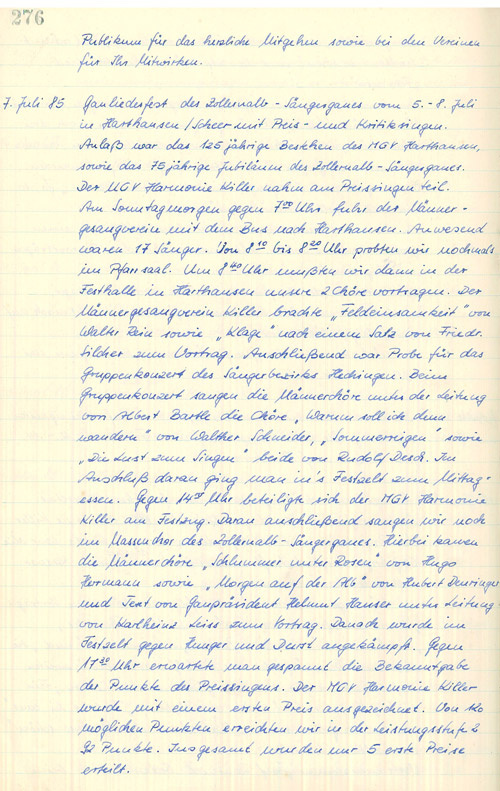 276
Publikum für das herzliche Mitgehen sowie bei den Vereinen
für Ihr Mitwirken.
7. Juli 85 Gauliederfest des Zollernalb-Sängergaues vom 5.-8. Juli
in Harthausen/Scheer mit Preis- und Kritiksingen.
Anlaß war das 125 jährige Bestehen des MGV Harthausen,
sowie das 75 jährige Jubiläum des Zollernalb-Sängergaues.
Der MGV Harmonie Killer nahm am Preissingen teil.
Am Sonntagmorgen gegen 7⁰⁰ Uhr fuhr der Männer-
gesangverein mit dem Bus nach Harthausen. Anwesend
waren 17 Sänger. Von 8¹⁰ bis 8²⁰ Uhr probten wir nochmals
im Pfarrsaal. Um 8⁴⁰ Uhr mußten wir dann in der
Festhalle in Harthausen unsre 2 Chöre vortragen. Der
Männergesangverein Killer brachte „Feldeinsamkeit" von
Walter Rein sowie „Klage" nach einem Satz von Friedr.
Silcher zum Vortrag. Anschließend war Probe für das
Gruppenkonzert des Sängerbezirkes Hechingen. Beim
Gruppenkonzert sangen die Männerchöre unter der Leitung
von Albert Barth die Chöre „Warum soll ich denn
wandern" von Walther Schneider, „Sommerreigen" sowie
„Die Lust zum Singen" beide von Rudolf Desch. Im
Anschluß daran ging man in's Festzelt zum Mittag-
essen. Gegen 14⁰⁰ Uhr beteiligte sich der MGV Harmonie
Killer am Festzug. Daran anschließend sangen wir noch
im Massenchor des Zollernalb-Sängergaues. Hierbei kamen
die Männerchöre „Schlummer unter Rosen" von Hugo
Hermann sowie „Morgen auf der Alb" von Hubert Deuringer
und Text von Gaupräsident Helmut Hauser unter Leitung
von Karlheinz Leiss zum Vortrag. Danach wurde im
Festzelt gegen Hunger und Durst angekämpft. Gegen
17³⁰ Uhr erwartete man gespannt die Bekanntgabe
der Punkte des Preissingens. Der MGV Harmonie Killer
wurde mit einem ersten Preis ausgezeichnet. Von 120
möglichen Punkten erreichten wir in der Leistungsstufe 2
92 Punkte. Insgesamt wurden nur 5 erste Preise
erteilt.